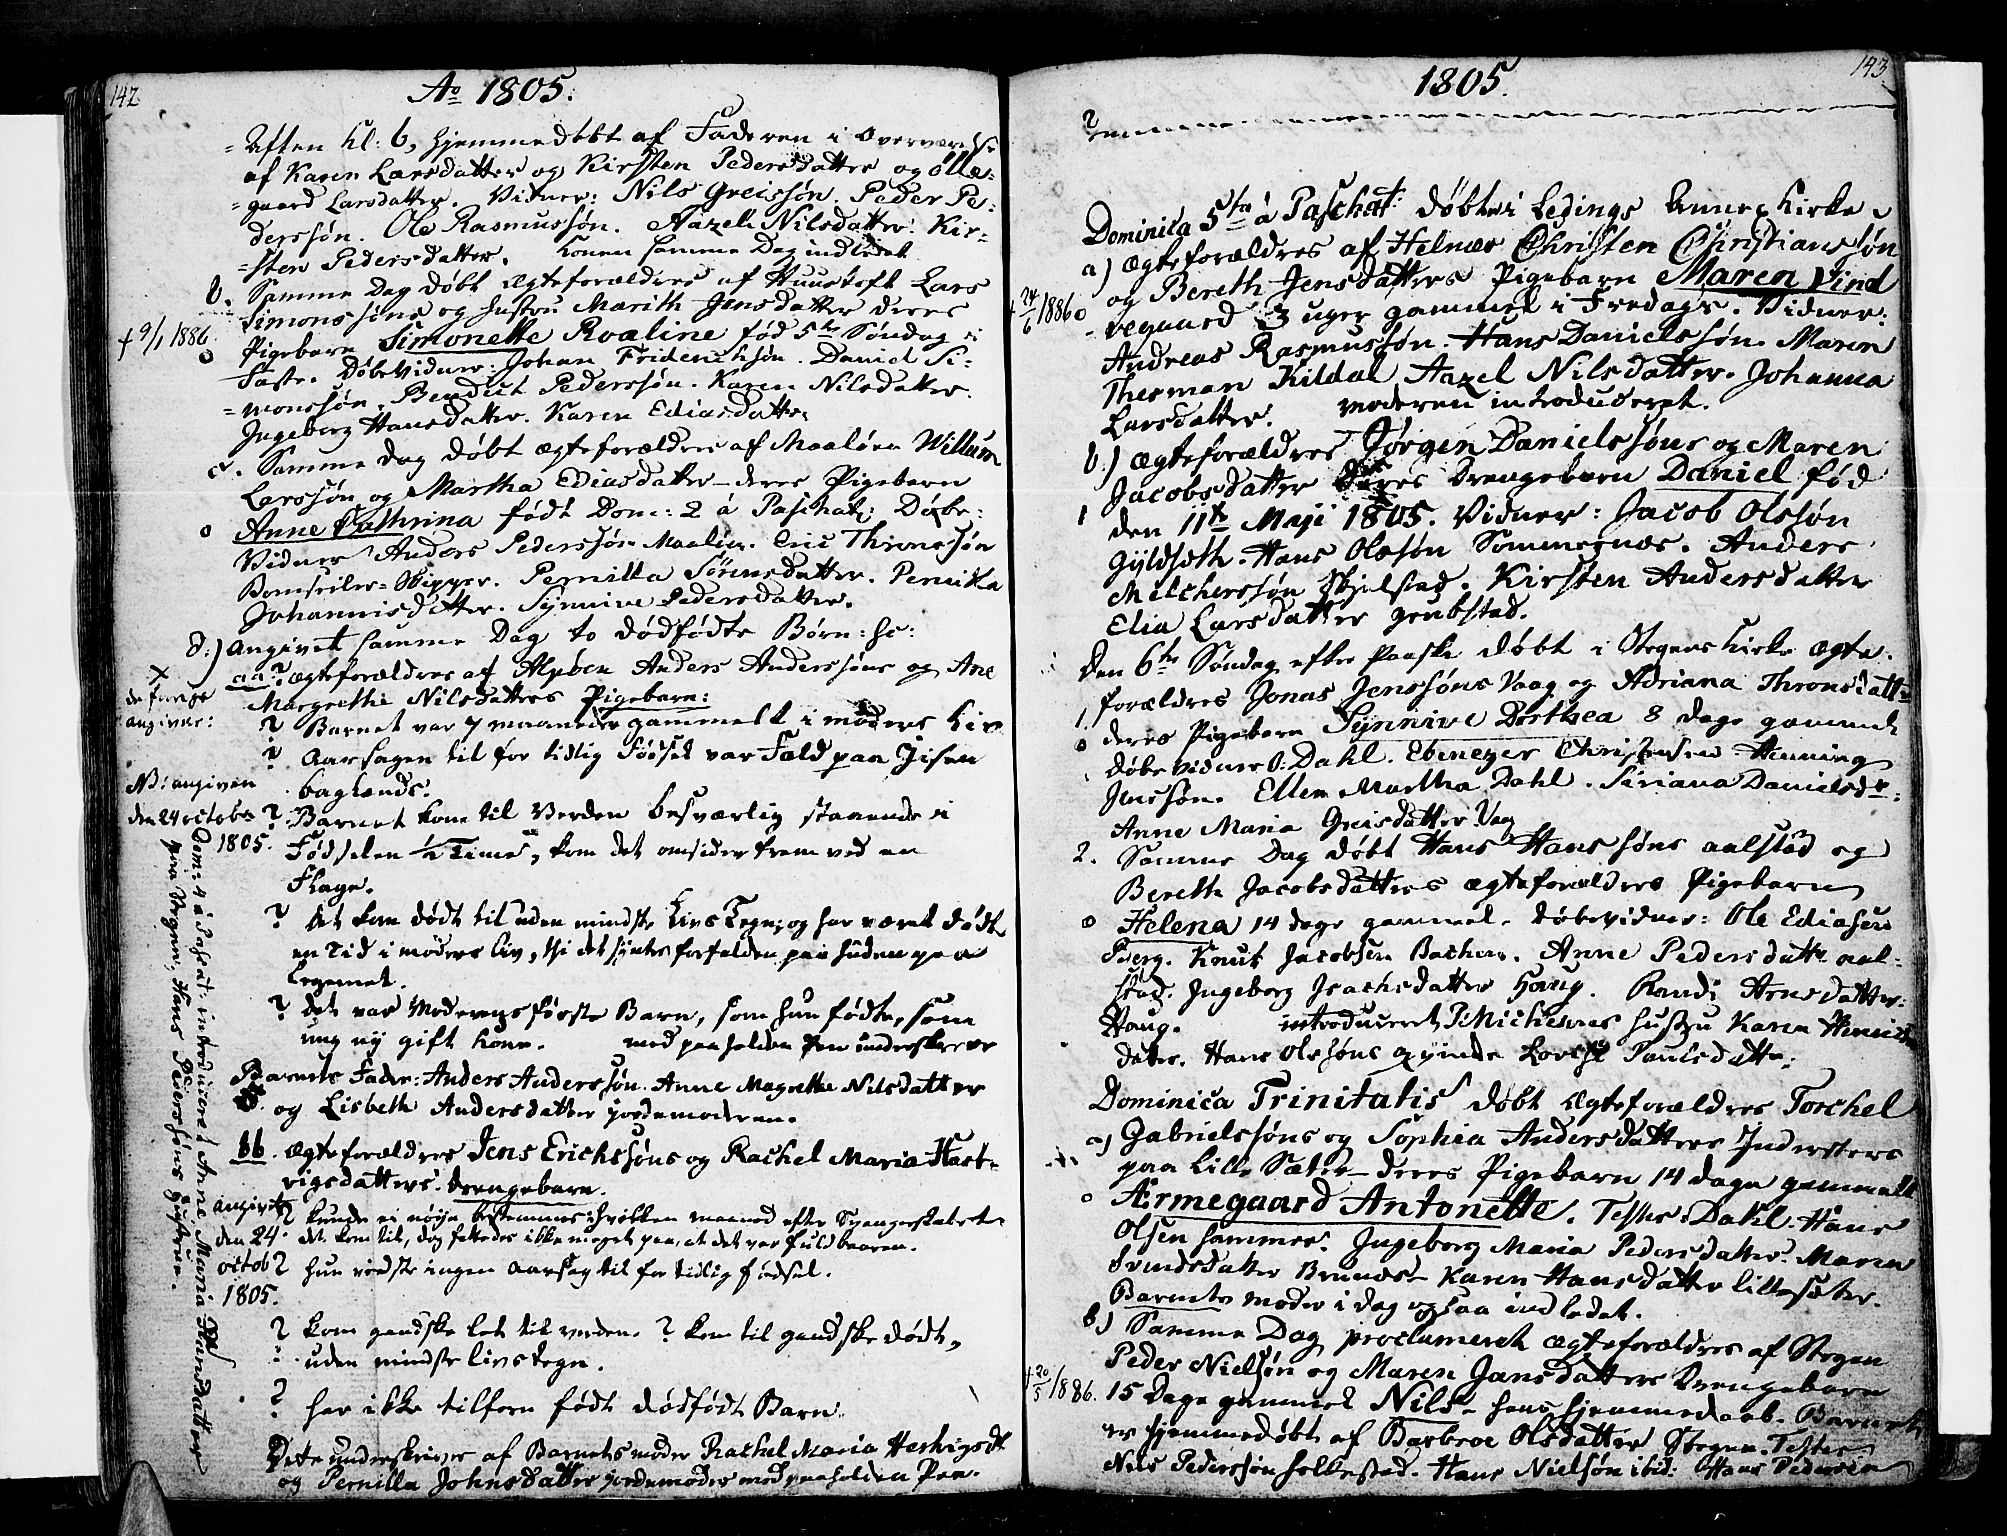 142
Ao 1805.
Aften Kl: 6, hjemmedøbt af Faderen i Overværelse
af Karen Larsdatter og Kirsten Pedersdatter og Olle-
gaard Larsdatter. Vidner: Nils Greissøn. Peder Pe-
derssøn. Ole Rasmussøn. Aazele Nilsdatter. Kir-
sten Pedersdatter. Konen samme Dag indledet
b. Samme Dag døbt ægteforældres af Huustoft Lars
Simonssøns og hustru Marith Jensdatter deres
† 9/1 1886
Pigebarn Simonette Roaline fød 5te Søndag i
Faste. Døbevidner: Johan Friderichsøn. Daniel Si-
monssøn. Bendict Pederssøn. Karen Nilsdatter.
Ingeborg Hansdatter. Karen Ediasdatter
c. Samme Dag døbt ægteforældres af Maaløen Willum
Larssøn og Martha Ediasdatter deres Pigebarn
Anne Cathrina født Dom: 2 á Paschat: Døbe-
Vidner Anders Pederssøn Maaløen. Eric Thronssøn
Bomseiler-Skipper. Pernilla Sörensdatter. Pernilla
Johannisdatter. Synnive Pedersdatter.
d.) angivet samme Dag to dødfødte Børn: sc:
aa ? ægteforældres af Alpøen Anders Anderssøns og Ane
Margrethe Nilsdatters Pigebarn:
de forrige
angiver:
? Barnet var 7 maaneder gammelt i moders Liv
? Aarsagen til for tidlig Fødsel var Fald paa Jisen
baglænds.
NB: angiven
den 24 october
1805.
? Barnet kom til Verden besværlig staaende i
Fødselen ½ Time, kom det omsider frem ved en
Flage.
? det kom dødt til uden mindste Livs Tegn; og har været dødt
en Tid i moders liv, thi det syntes forfalden paa huden paa
Legemet.
? det var Moderens første Barn, som hun fødte, som
ung ny gift kone. med paaholden Pen underskrevet
Barnets Fader: Anders Anderssøn. Anne Magrethe Nilsdatter
og Lisbeth Andersdatter jordemoderen.
bb. ægteforældres Jens Erichssøns og Rachel Maria Hart-
vigsdatters drengebarn.
angivet
den 24
octob
1805.
? kunde ei nøye bestemmes hvilken maaned efter Svangerskabet
det kom til, dog feilede ikke meget paa, at det var fuldbaaren.
? hun vidste ingen aarsag til for tidlig fødsel.
? kom gandske let til verden. ? kom til gandske dødt,
uden mindste livstegn.
? har ikke tilforn født dødfødt Barn.
Dette underskrives af Barnets moder Rachel Maria Hertvigsdt
og Pernilla Johnsdatter jordemoder med paaholden Pen.
Dom: 4 á Paschat: introduceret Anne Maria Hansdatter
paa Vegnes, Hans Peterssøns hustrue.
143
1805.
Dominica 5ta á Paschat: døbte i Ledings Annex Kirke
a) ægteforældres af Helnæs Christen Christianssøn
og Bereth Jensdatters Pigebarn Maren Vind
† 24/6 1886
vegaard 3 uger gammel i Fredags. Vidner:
Andreas Rasmussøn. Hans Danielssøn. Maren
Therman Kildal Aazel Nilsdatter. Johanna
Larsdatter. moderen introduceret.
b.) ægteforældres Jørgen Danielssøns og Maren
Jacobsdatter deres Drengebarn Daniel fød
den 11te Maji 1805. Vidner: Jacob Olssøn
Gyldseth. Hans Olssøn Sommernæs. Anders
Melcherssøn Skjelstad. Kirsten Andersdatter
Elia Larsdatter
Den 6te Søndag efter Paaske døbt i Stegens Kirke ægte-
1. forældres Jonas Jenssøns Vaag og Adriana Thronsdatt:
deres Pigebarn Synnive Dorthea 8 dage gammel
døbe vidner: Dahl. Ebenezer Christensen Henning
Jenssøn. Ellen Martha Dahl. Siriana Danielsdr:
Anne Maria Greisdatter Vaag
2. Samme Dag døbt Hans Hanssøns aalstad og
Bereth Jacobsdatters ægteforældres Pigebarn
Helena 14 dage gammel. døbevidner: Ole Ediasen
Berg. Knut Jacobsen Bachen. Anne Pedersdatter aal-
stad. Ingeborg Isachsdatter Houg. Randi Arnsdatter
Haug. introduceret Michesnes hustru Karen Henrics
datter. Hans Olssøns qvinde Lovise Paulsdatter.
Dominica Trinitatis døbt ægteforældres Torchel
a) Gabrielssøns og Sophia Andersdatters Indersters
paa Lille Sæter deres Pigebarn 14 dage gammelt
Ærmegaard Antonette. Testes: Dahl. Hans
Olsen sammes. Ingeborg Maria Pedersdatter. Maren
Svendsdatter Brunæs. Karen Hansdatter Lillesæter.
Barnets moder i dag ogsaa indledet.
b) Samme Dag proclameret ægteforældres af Stegen
Peder Nielsøn og Maren Jansdatters Drengebarn
† 20/5 1886.
15 Dage gammel Nils hans hjemmedaab. Barnet
er hjemmedøbt af Barbroe Olsdatter Stegen. Testes
Nils Pederssøn Holkestad. Hans Nielsøn ibid: Hans Pedersen